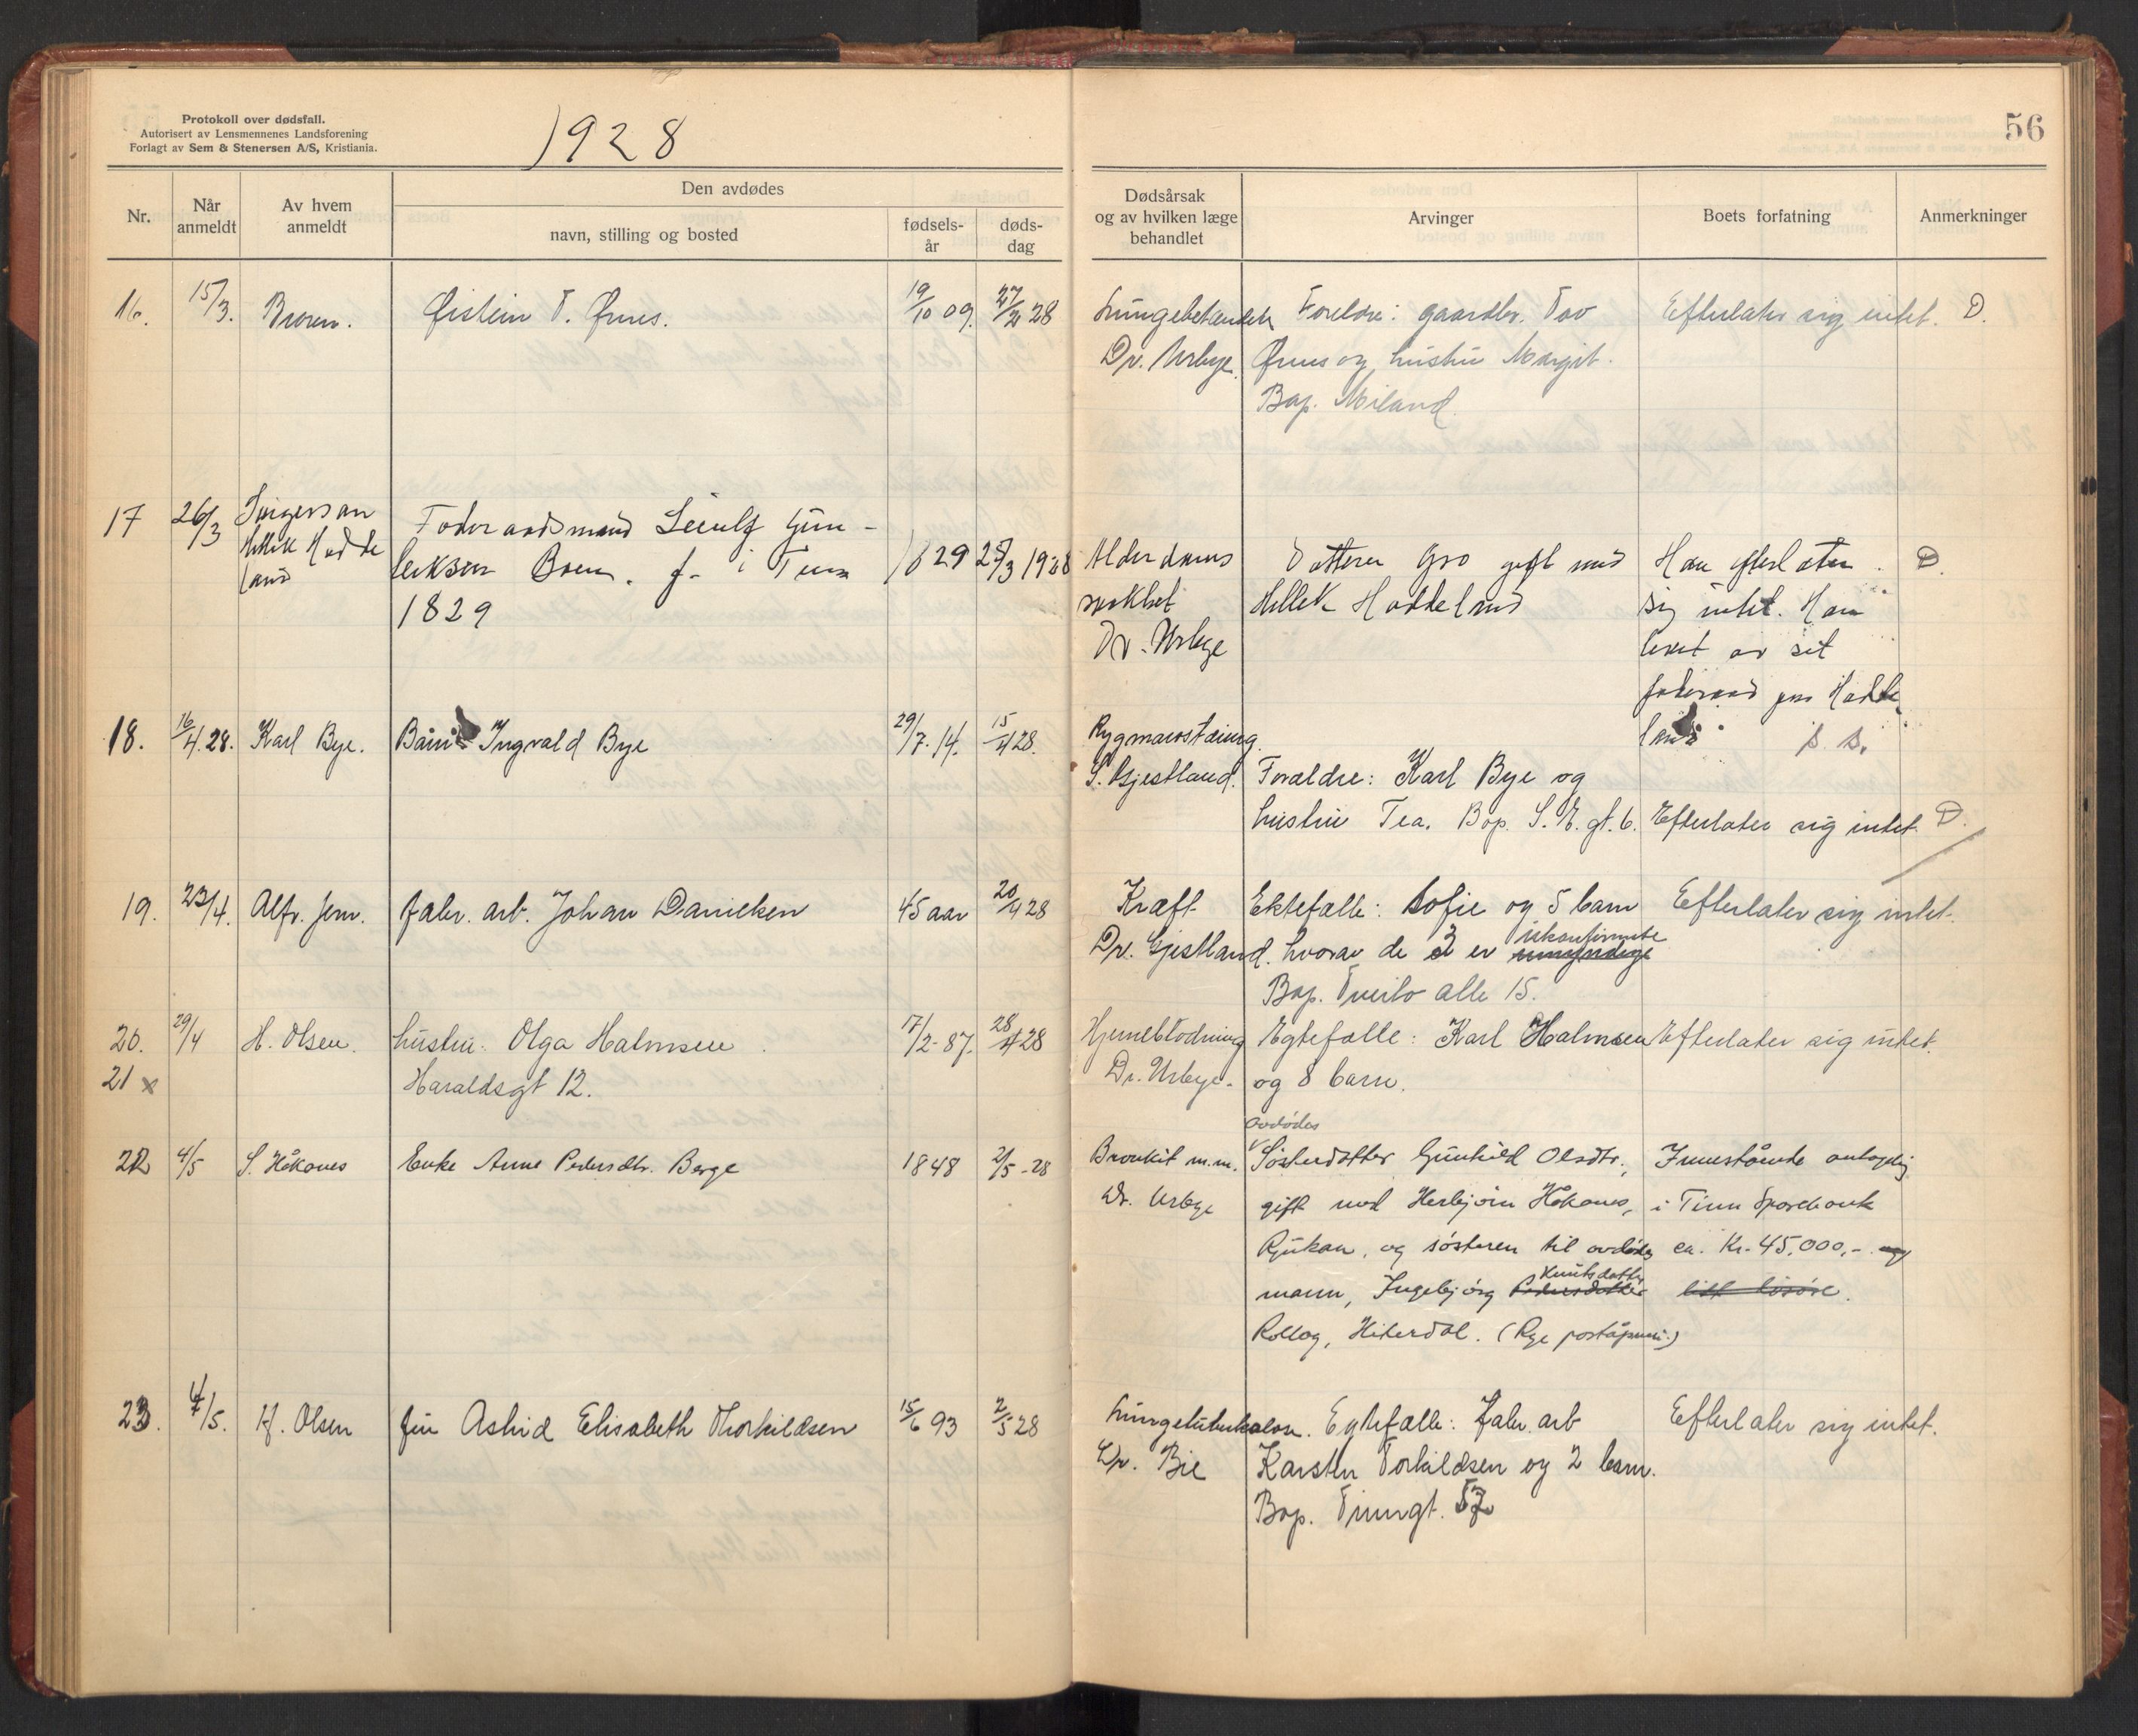 Protokoll over dødsfall.
Autorisert av Lensmennenes Landsforening
Forlagt av Sem & Stenersen A/S, Kristiania.
1928
56
Nr.
Når anmeldt
Av hvem anmeldt
Den avdødes
navn, stilling og bosted
fødsels-år
døds-dag
Dødsårsak og av hvilken læge behandlet
Arvinger
Boets forfatning
Anmerkninger
16. 15/3. Broren. Øistein T. Ørnes. 19/10 09. 27/2 28
Dr. Urbye.
Foreldre: gaardbr. Tov
Ørnes og hustru Margit.
Bop. Miland
Efterlater sig intet. D.
17 26/3
Føderaadsmand Leiulf Gun-
leksen Boen. f. i Tinn
1829
1829 25/3 1928
Alderdoms
svakhet
Dr. Urbye
Datteren Gro gift med
Hellek Haddeland
Han efterlater
sig intet. Han
levet av sit
føderaad paa Hadde
land
D.
18. 16/4.28. Karl Bye. Barn Ingvald Bye 29/7.14. 15/4 28.
Rygmarvstæring.
S. Gjestland.
Forældre: Karl Bye og
hustru Tea. Bop. S. E. gt. 6. Efterlater sig intet. D.
19. 23/4. Alfr. Jern. fabr. arb. Johan Danielsen 45 aar 20/4 28
Kræft
Dr. Gjestland.
Ektefælle: Sofie og 5 barn
hvorav de 3 er ukonfirmerte
umyndige
Bop. Tveito alle 15.
Efterlater sig intet.
20. 29/4 H. Olsen. hustru Olga Halmsen 17/2-87. 28/4 28
21 x Haraldsgt 12.
Hjerneblødning
Dr. Urbye.
Egtefælle: Karl Halmsen
og 8 barn.
Efterlater sig intet.
22 4/5 S. Håkanes Enke Anne Pedersdtr. Berge 1848 2/5-28
Bronkit m.m.
Dr. Urbye
avdødes
Søsterdatter Gunhild Olsdtr.,
gift med Herbjørn Håkanes,
Rjukan, og søsteren til avdødes
mann, Ingebjørg Pedersdatter Knutsdatter
Rollag, Hiterdal. (Rye poståpneri.)
Innestående antagelig
i Tinn Sparebank
ca. Kr. 45.000,- og
litt løsøre.
23. 4/5. H. Olsen fru Astrid Elisabeth Thorkildsen 15/6 93 2/5 28
Lungetuberkulose.
Dr. Bie
Egtefælle: Fabr. arb
Karsten Torkildsen og 2 barn.
Bop. Tinngt.
Efterlater sig intet.